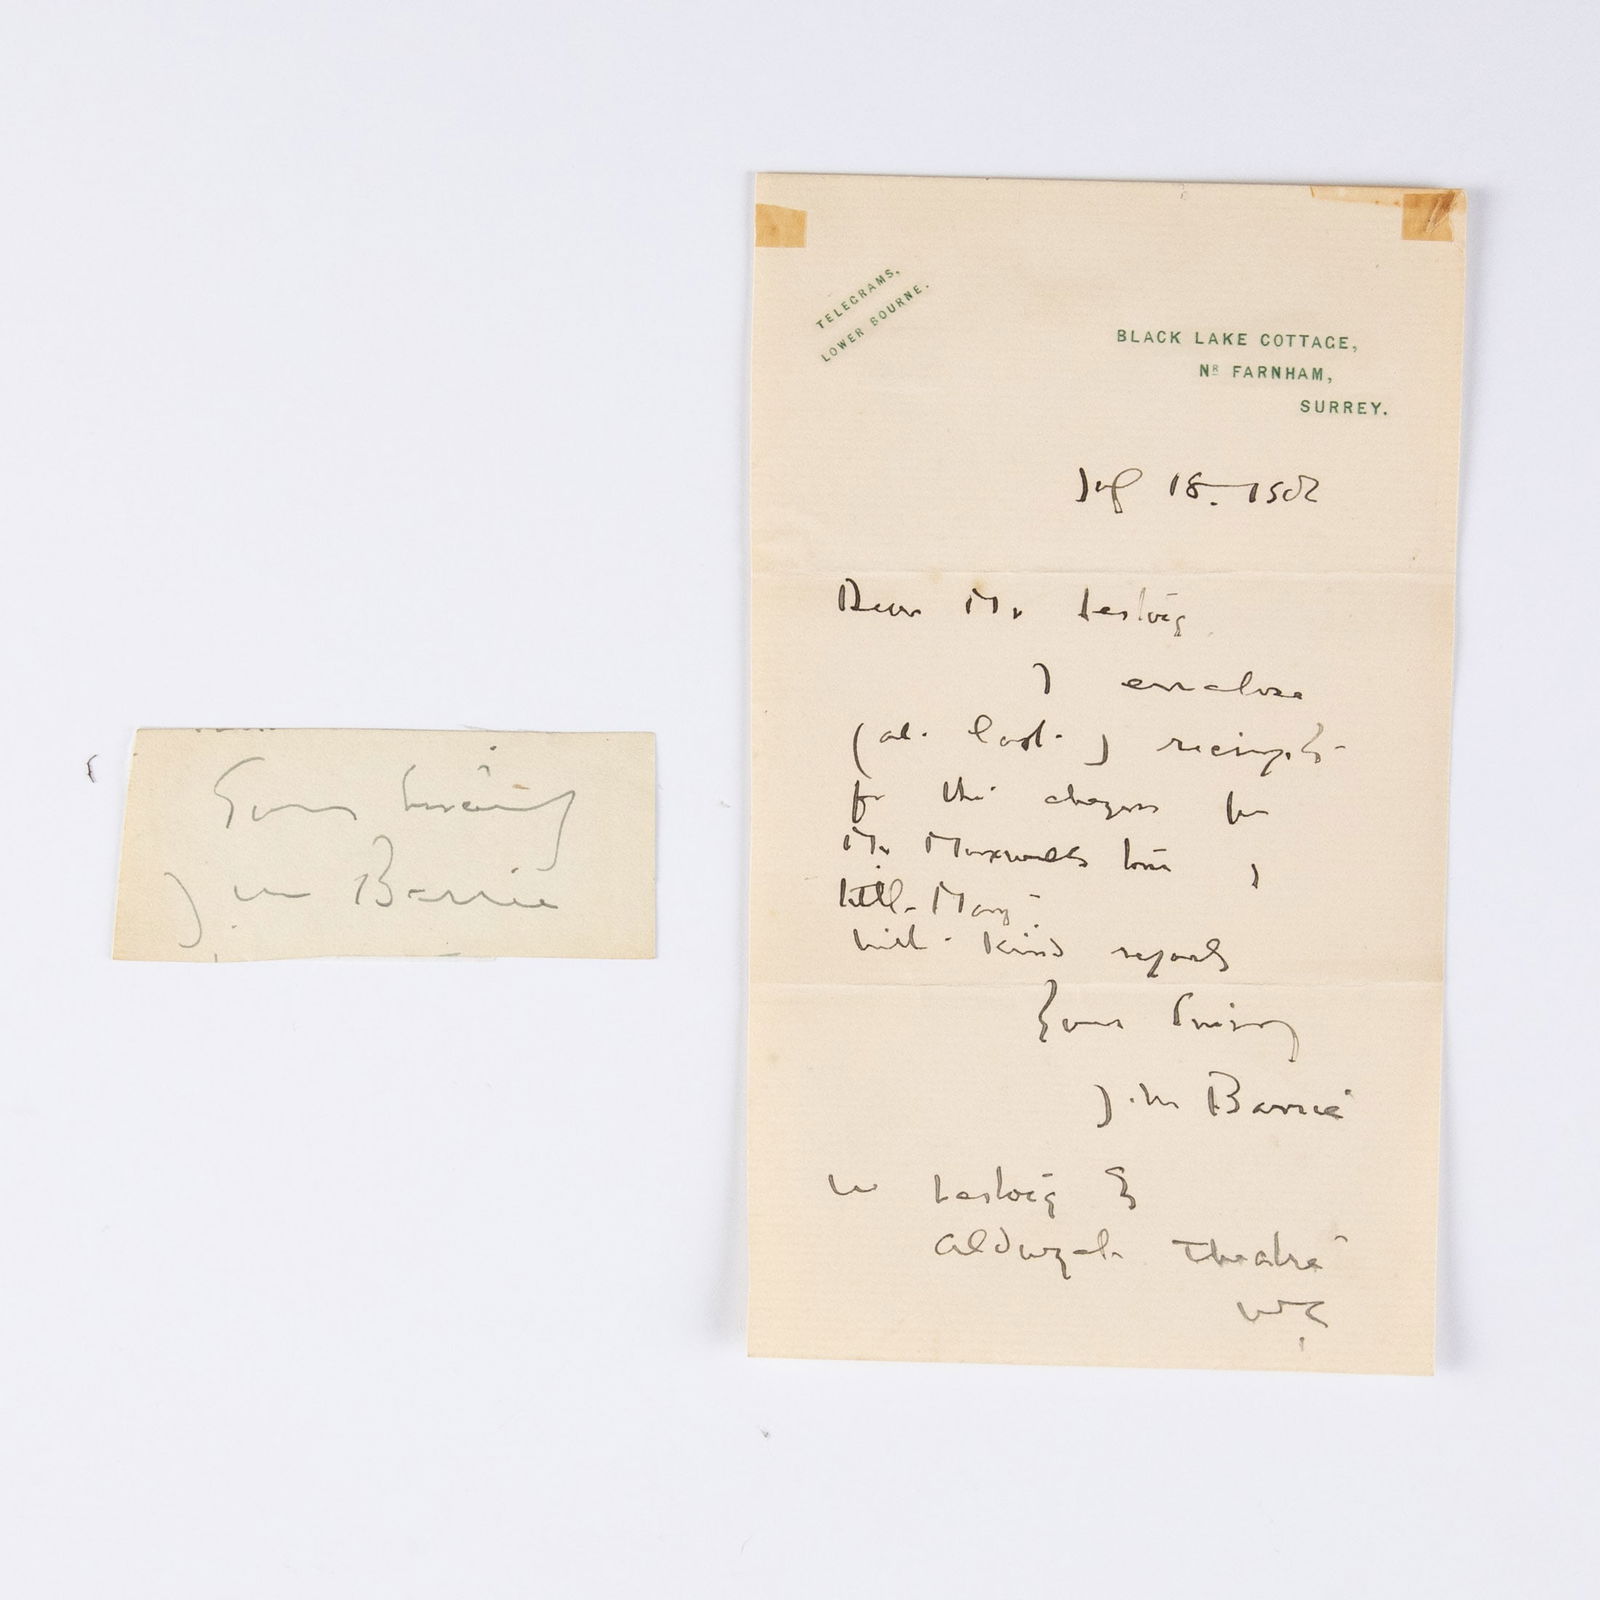 Yours sincerely
J. M. Barrie
TELEGRAMS,
LOWER BOURNE.
BLACK LAKE COTTAGE,
NR FARNHAM,
SURREY.
18.
Dear Mr
I enclose
(at last) receipts
for the cheques for
Mr Maxwell's
Mary
with kind regards
Yours sincerely
J. M. Barrie
Aldwych Theatre
WC